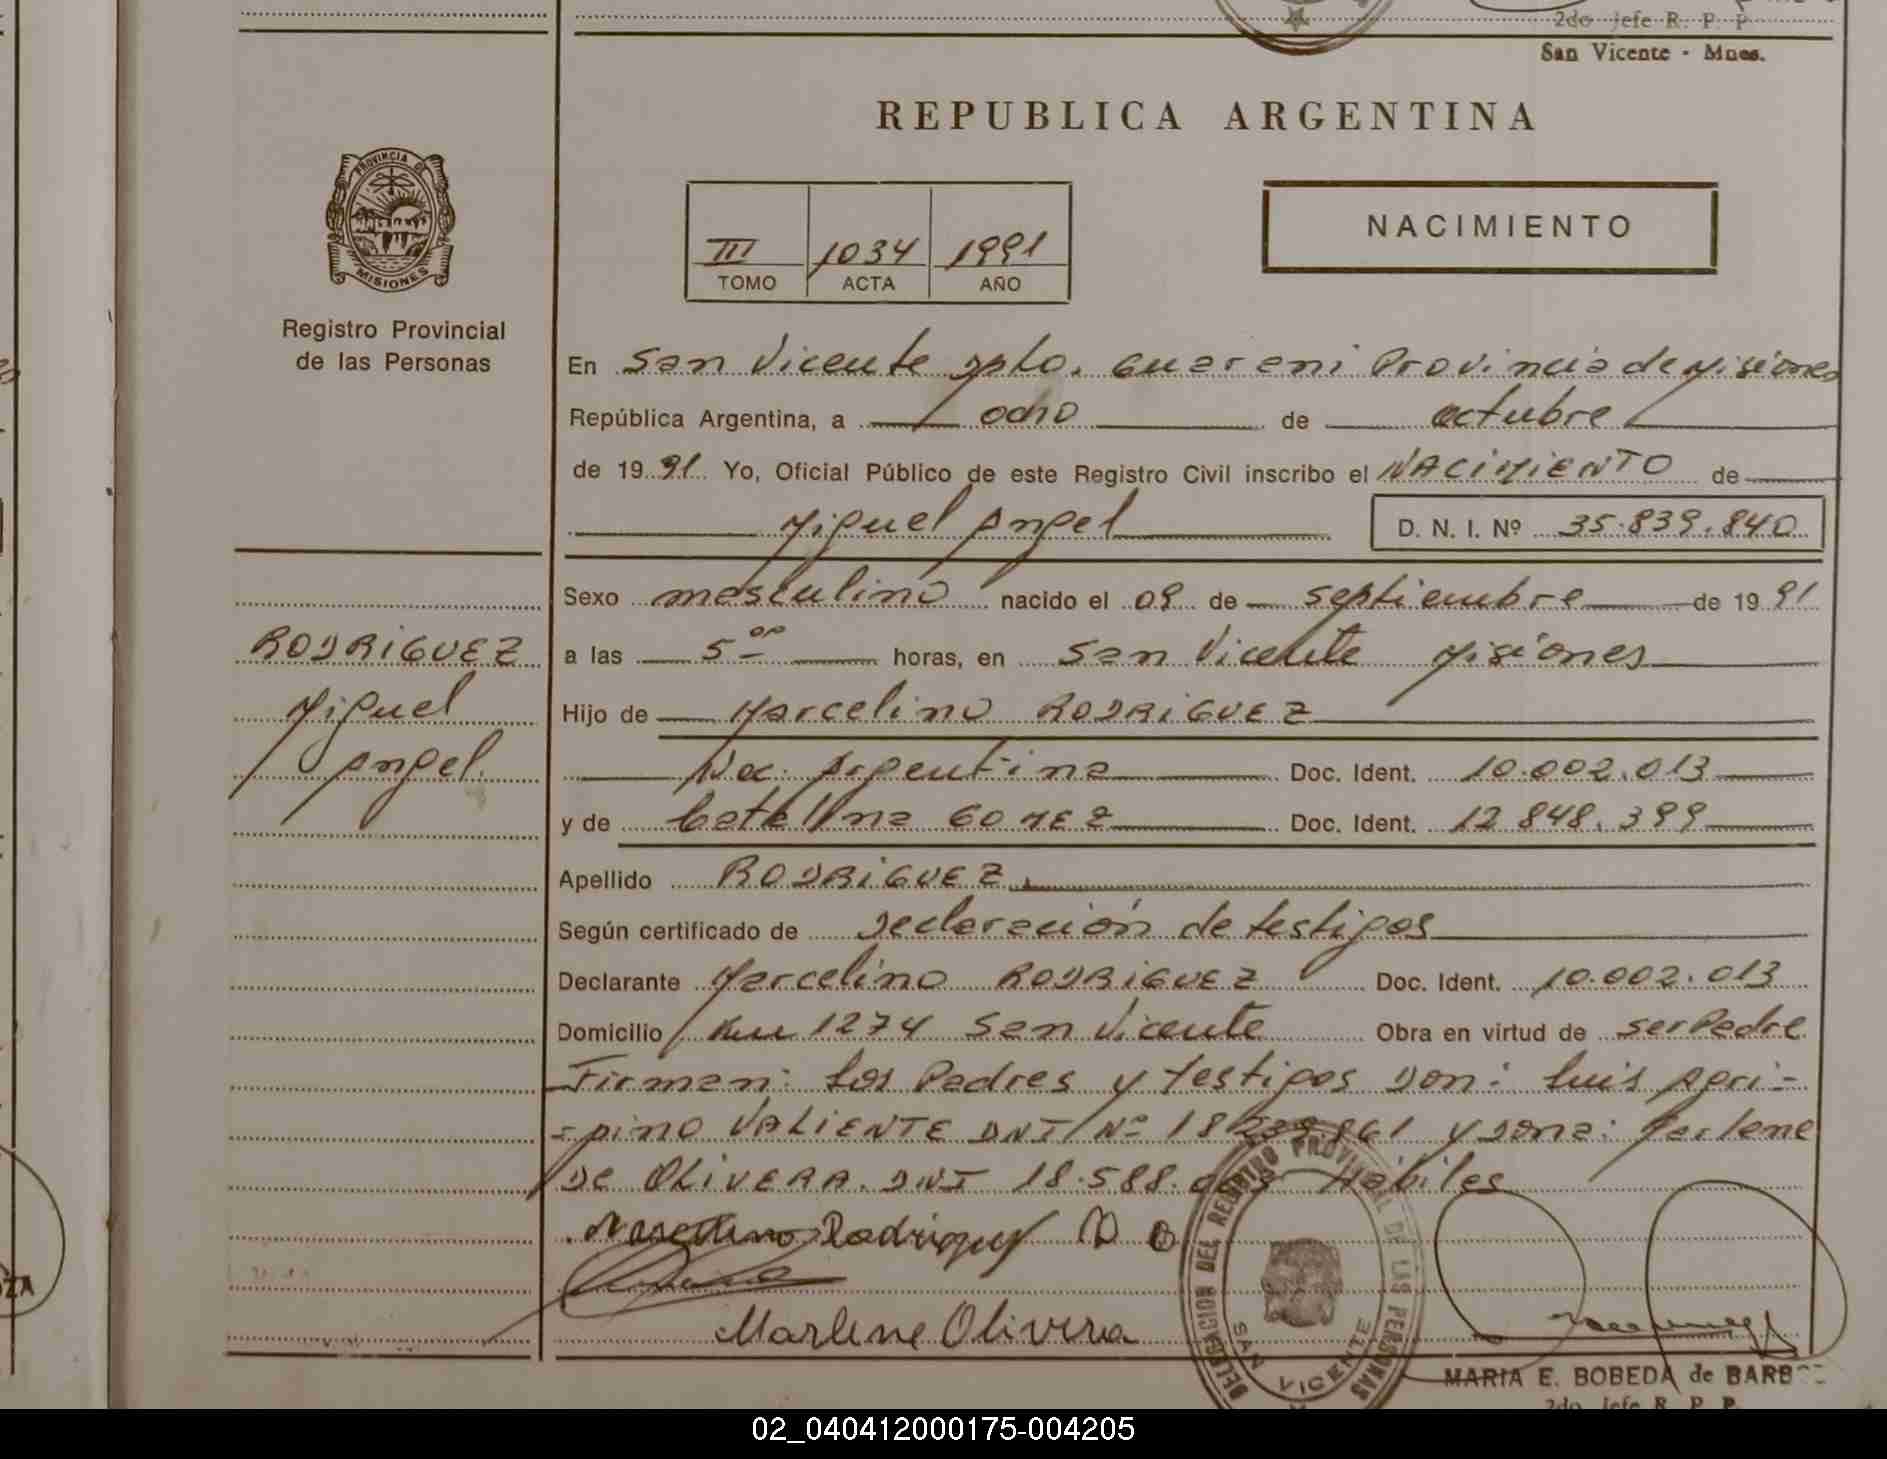 2do Jefe R. P. P
San Vicente - Mnes.
REPUBLICA ARGENTINA
PROVINCIA DE
MISIONES
III 1034 1991
TOMO ACTA AÑO
NACIMIENTO
Registro Provincial
de las Personas
En San Vicente Dpto. Guarani Provincia de Misiones
República Argentina, a ocho de octubre
de 1991 Yo, Oficial Público de este Registro Civil inscribo el NACIMIENTO de
Miguel Angel D. N. I. Nº 35.839.840
Sexo masculino nacido el 09 de septiembre de 1991
RODRIGUEZ
Miguel
Angel
a las 5 00 horas, en San Vicente Misiones
Hijo de Marcelino RODRIGUEZ
Nac. Argentina Doc. Ident. 10.002.013
y de Catalina GOMEZ Doc. Ident. 12.848.399
Apellido RODRIGUEZ
Según certificado de Declaración de testigos
Declarante Marcelino RODRIGUEZ Doc. Ident. 10.002.013
Domicilio Km 1274 San Vicente Obra en virtud de ser Padre
Firman: Los Padres y testigos Don: Luis Agri-
-pino VALIENTE DNI Nº 18 861 y Dona: Marlene
DE OLIVERA. DNI 18.588. Hábiles
Marcelino Rodriguez
Marlene Olivera
DELEGACION DEL REGISTRO PROVINCIAL DE LAS PERSONAS
SAN VICENTE
MARIA E. BOBEDA de BARB
2do. Jefe R. P. P.
02_040412000175-004205